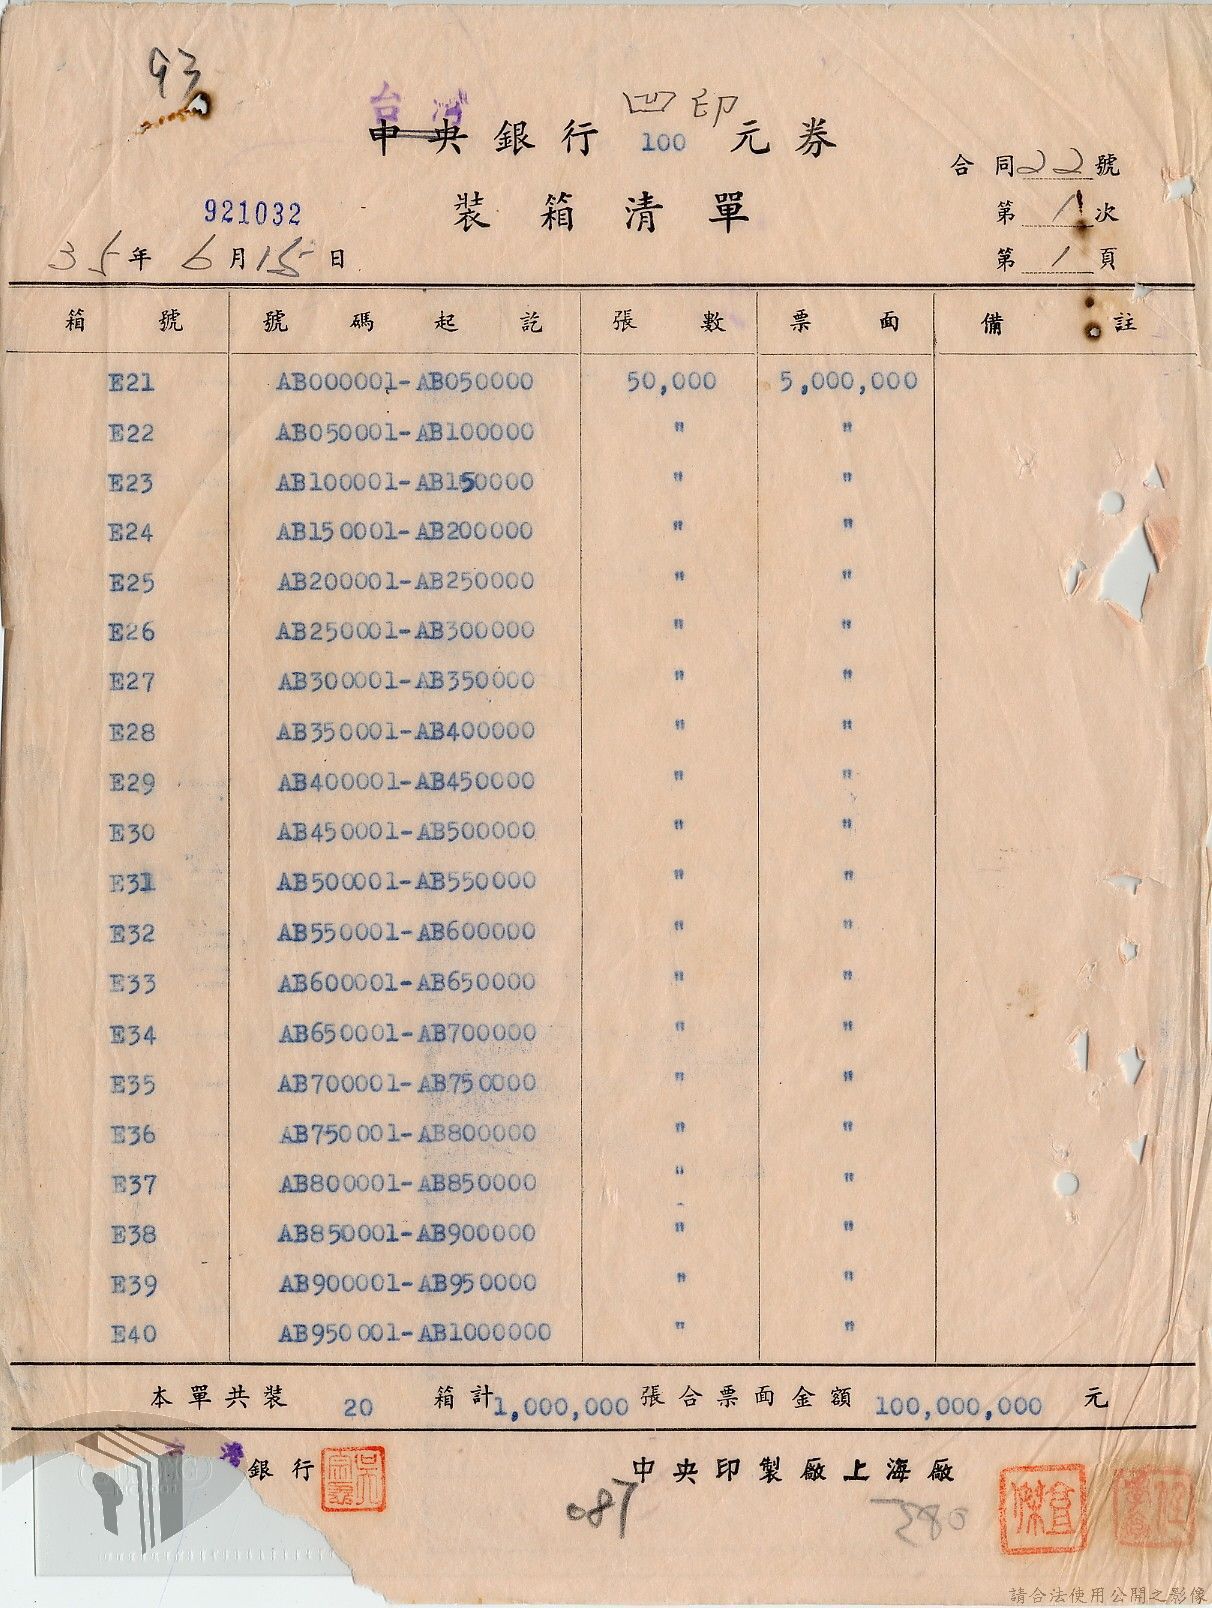 93
台灣 凹印
中央銀行 100 元券
合同22號
921032 裝箱清單 第1次
35年6月15日 第1頁
箱號 號碼起訖 張數 票面 備註
E21 AB000001-AB050000 50,000 5,000,000
E22 AB050001-AB100000 " "
E23 AB100001-AB150000 " "
E24 AB150001-AB200000 " "
E25 AB200001-AB250000 " "
E26 AB250001-AB300000 " "
E27 AB300001-AB350000 " "
E28 AB350001-AB400000 " "
E29 AB400001-AB450000 " "
E30 AB450001-AB500000 " "
E31 AB500001-AB550000 " "
E32 AB550001-AB600000 " "
E33 AB600001-AB650000 " "
E34 AB650001-AB700000 " "
E35 AB700001-AB750000 " "
E36 AB750001-AB800000 " "
E37 AB800001-AB850000 " "
E38 AB850001-AB900000 " "
E39 AB900001-AB950000 " "
E40 AB950001-AB1000000 " "
本單共裝 20 箱計1,000,000張合票面金額 100,000,000 元
台灣銀行 中央印製廠上海廠
087 380
請合法使用公開之影像